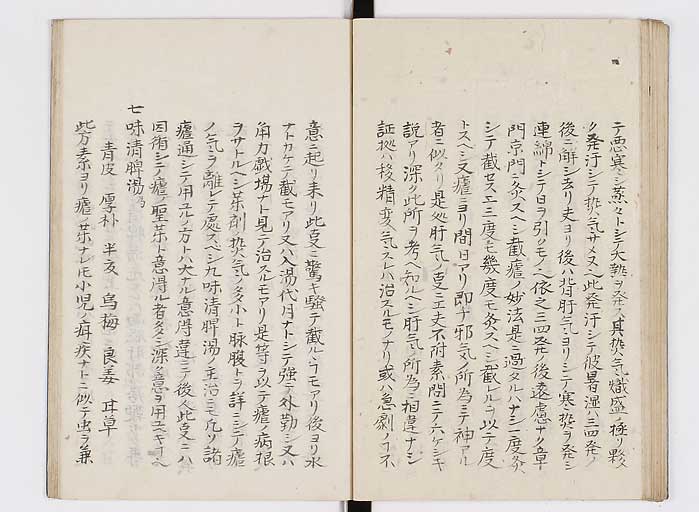 テ悪寒シ蒸々トシテ大熱ヲ発ス其热気熾盛ノ極リ夥
ク発汗シテ热気サメ入此発汗シテ彼暑湿ハ三四発ノ
後ニ解シ去リ夫ヨリ後ハ皆肝気ヨリシテ寒热ヲ発シ
連綿トシテ日ヲ引クモノ也依之三四発ノ後遠慮ナク章
門京門ニ灸スヘシ截瘧ノ妙法是ニ過タルハナシ一度灸
シテ截セスモ三度モ幾度モ灸スヘシ截ルヲ以テ度
トスヘシ又瘧ニヨリ間日アリ即チ邪気ノ所為ニテ神アル
者ニ似タリ是処肝気ノ変ニテ丈不附素問ニテ六ケシキ
説アリ深ク此所ヲ考ヘ知ルヘシ肝気ノ所為ニ相違ナシ
証拠ハ移精変気スレハ治スルモノナリ或ハ急劇ノ丁不
意ニ起リ来リ此変ニ驚キ騒テ截ルヽモアリ後ヨリ水
ナトカケテ截モアリ又ハ入湯代月ナトシテ強テ外勤シ又ハ
角力戯場ナト見テ治スルモアリ是等ヲ以テ瘧ノ病根
ヲサトルヘシ茶剤热気ノ多小ト脉腹トヲ詳ニシテ瘧
ノ気ヲ離レテ処スベシ九味清脾湯ノ主治ニモ凡ソ諸
瘧通シテ用ユルノ方トハ大ナル意得違ニテ後人此変ニハ
因術シテ瘧ノ聖茶ト意得ル者多シ深ク意ヲ用ユヘキ丁也
七味清脾湯
青皮 厚朴 半夏 烏梅 良姜 甘草
此方素ヨリ瘧ノ茶ナレ𪜈小児ノ疳疾ナトニ似テ虫ヲ兼